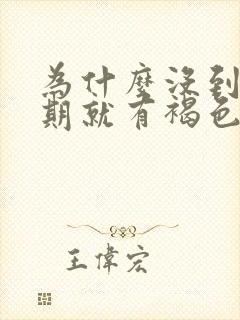 為什麼沒到
期就有褐色
王偉宏